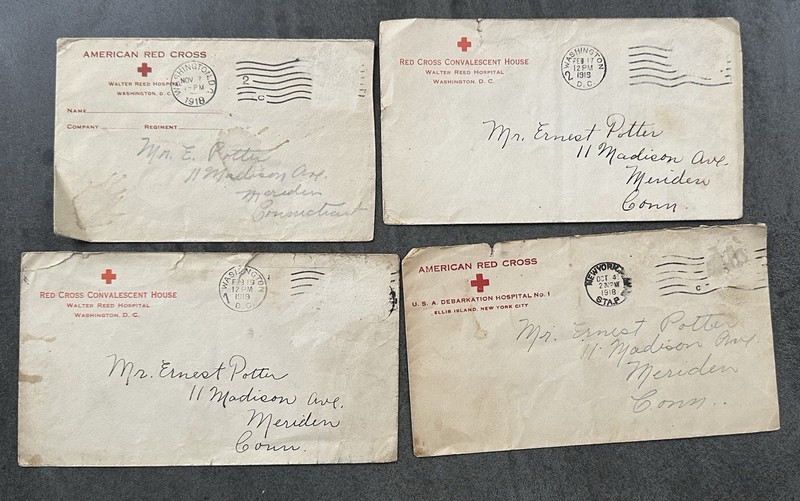 AMERICAN RED CROSS
WALTER REED HOSPITAL
WASHINGTON, D. C.
NAME
COMPANY REGIMENT
WASHINGTON, D.C.
NOV 7
PM
1918
2
C
Mr. E. Potter
11 Madison Ave.
Meriden
Connecticut
RED CROSS CONVALESCENT HOUSE
WALTER REED HOSPITAL
WASHINGTON, D. C.
WASHINGTON
FEB 17
12 PM
1919
D.C.
2
Mr. Ernest Potter
11 Madison Ave.
Meriden
Conn.
RED CROSS CONVALESCENT HOUSE
WALTER REED HOSPITAL
WASHINGTON, D. C.
WASHINGTON
FEB 19
12 PM
1919
D.C.
Mr. Ernest Potter
11 Madison Ave.
Meriden
Conn.
AMERICAN RED CROSS
U. S. A. DEBARKATION HOSPITAL NO. 1
ELLIS ISLAND, NEW YORK CITY
NEW YORK, N.Y.
OCT 4
PM
1918
STA. P
C
Mr. Ernest Potter
11 Madison Ave.
Meriden
Conn.